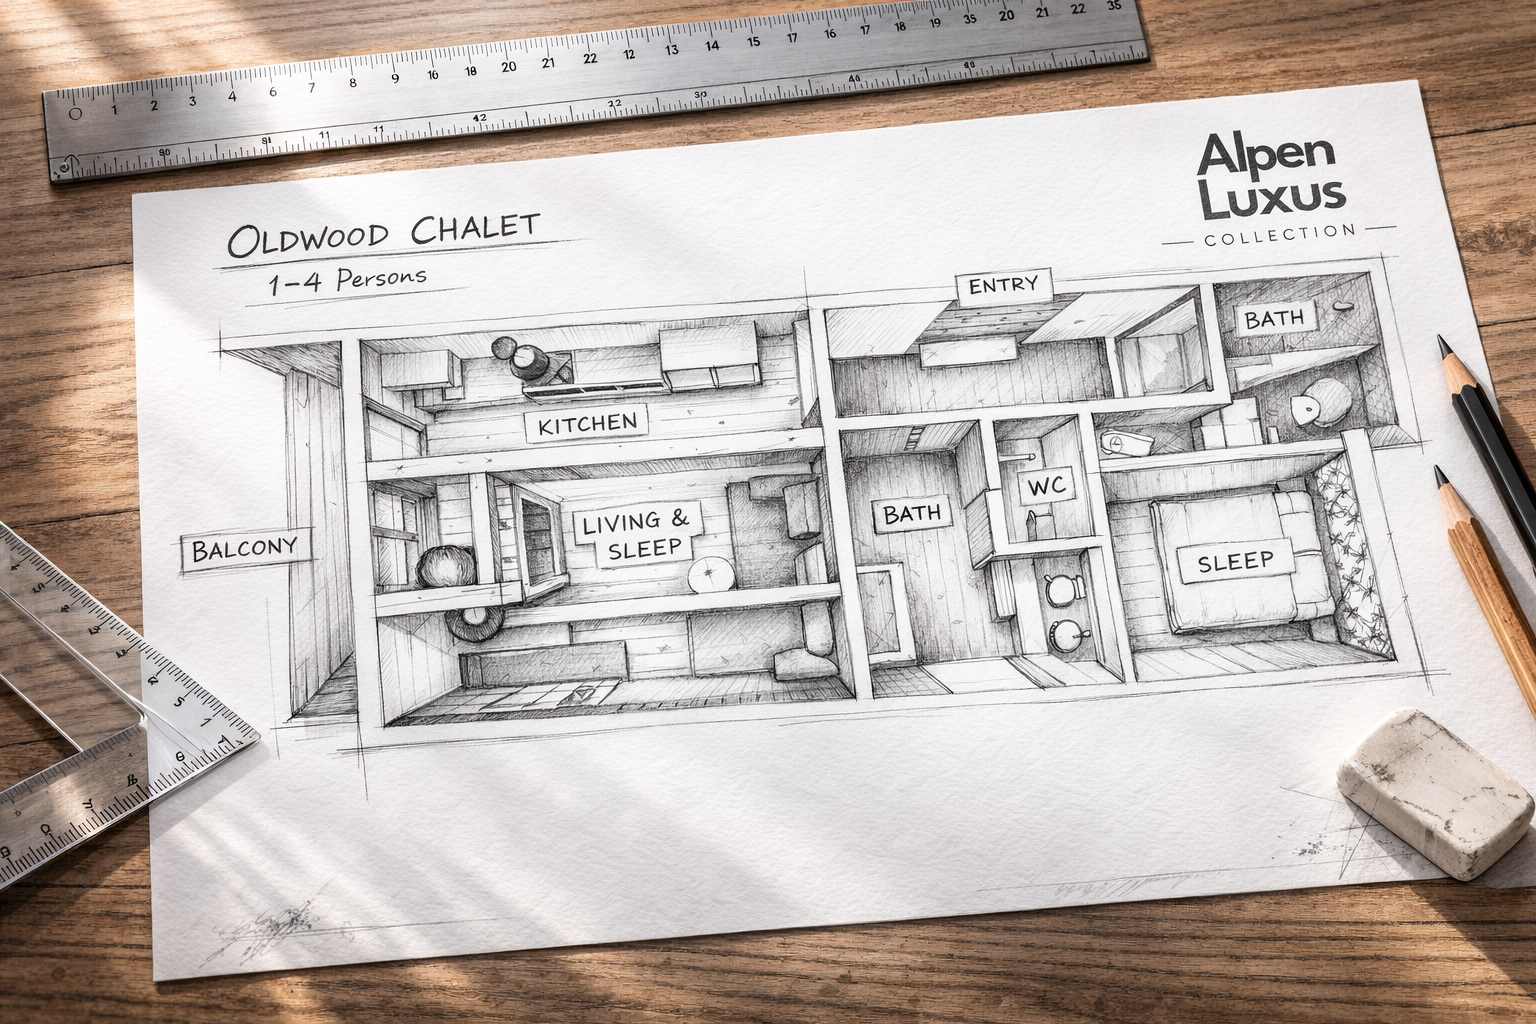 0 1 2 3 4 6 7 8 9 16 18 20 21 22 12 13 14 15 17 16 17 18 19 35 20 21 22 35
Alpen
Luxus
COLLECTION
OLDWOOD CHALET
1–4 Persons
ENTRY
BATH
KITCHEN
LIVING &
SLEEP
BATH
WC
BALCONY
SLEEP